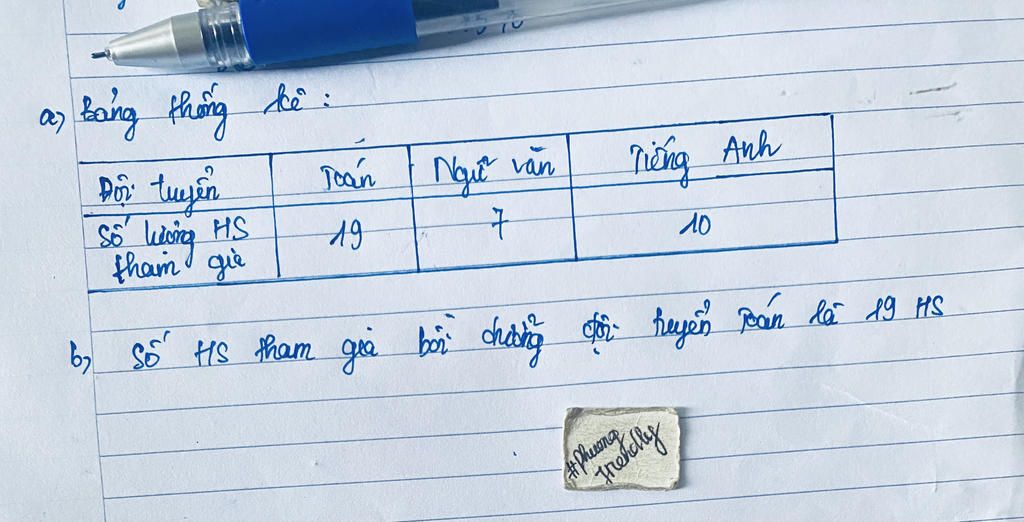 a) Bảng thống kê :
Đội tuyển Toán Ngữ văn Tiếng Anh
Số lượng HS tham gia 19 7 10
b) Số HS tham gia bồi dưỡng đội tuyển Toán là 19 HS
#phuong
friendly